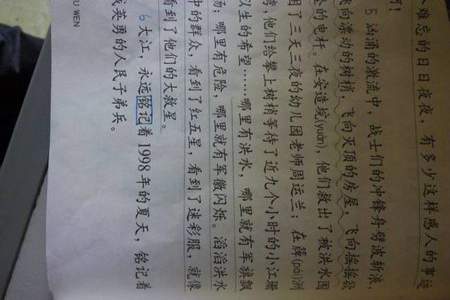 个难忘的日日夜夜，有多少这样感人的事迹
5 汹涌的激流中，战士们的冲锋舟劈波斩浪，
飞向漂动的树梢，飞向灭顶的房屋，飞向摇摇欲
坠的电杆。在安造垸(yuàn)，他们救出了被洪水围
困了三天三夜的幼儿园老师周运兰；在簰(pái)洲
湾，他们给攀上树梢等待了近九个小时的小江珊
以生的希望……哪里有洪水，哪里就有军旗飘
扬；哪里有危险，哪里就有军徽闪烁。滔滔洪水
中的群众，看到了红五星，看到了迷彩服，就像
看到了他们的大救星。
6 大江，永远铭记着1998年的夏天，铭记着
我英勇的人民子弟兵。
U WEN